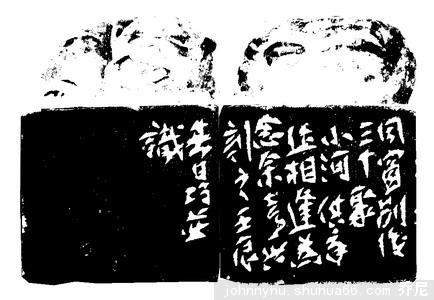 同窗別後
三十載
小河供章
近相逢甚
念余喜為
刻之壬辰
春日巧並
識
johnnyhu.shuhua66.com 乔尼